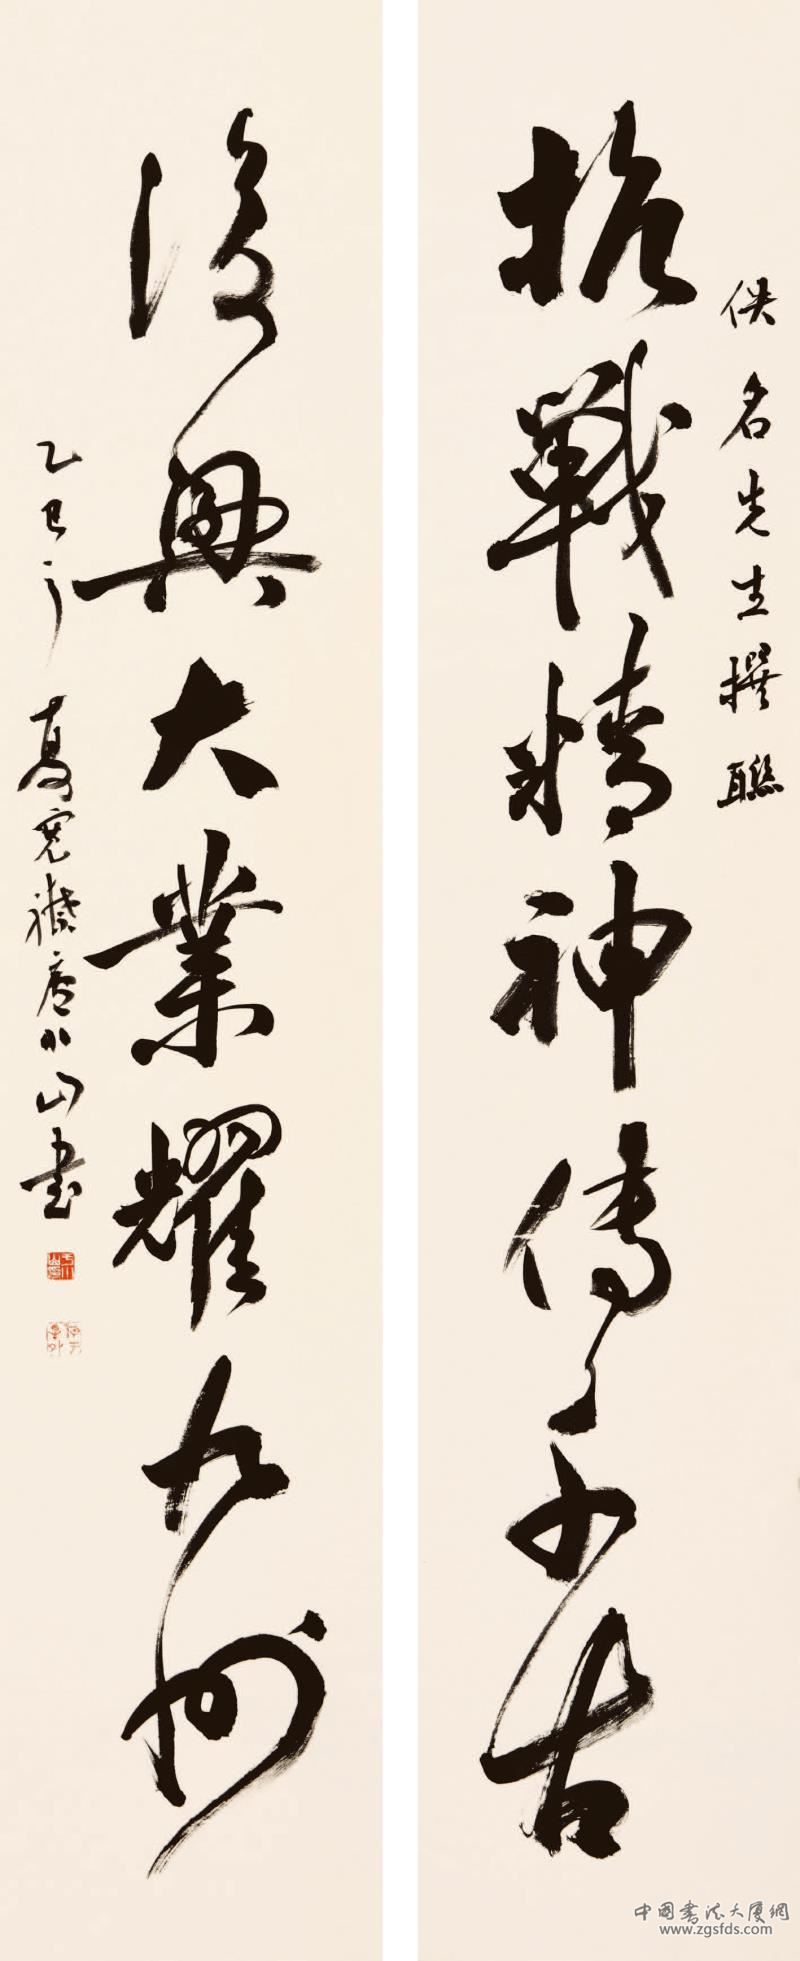 佚名先生撰聯
抗戰精神傳千古
復興大業耀九州
乙巳之夏 小山書
中国書法大厦網
www.zgsfds.com